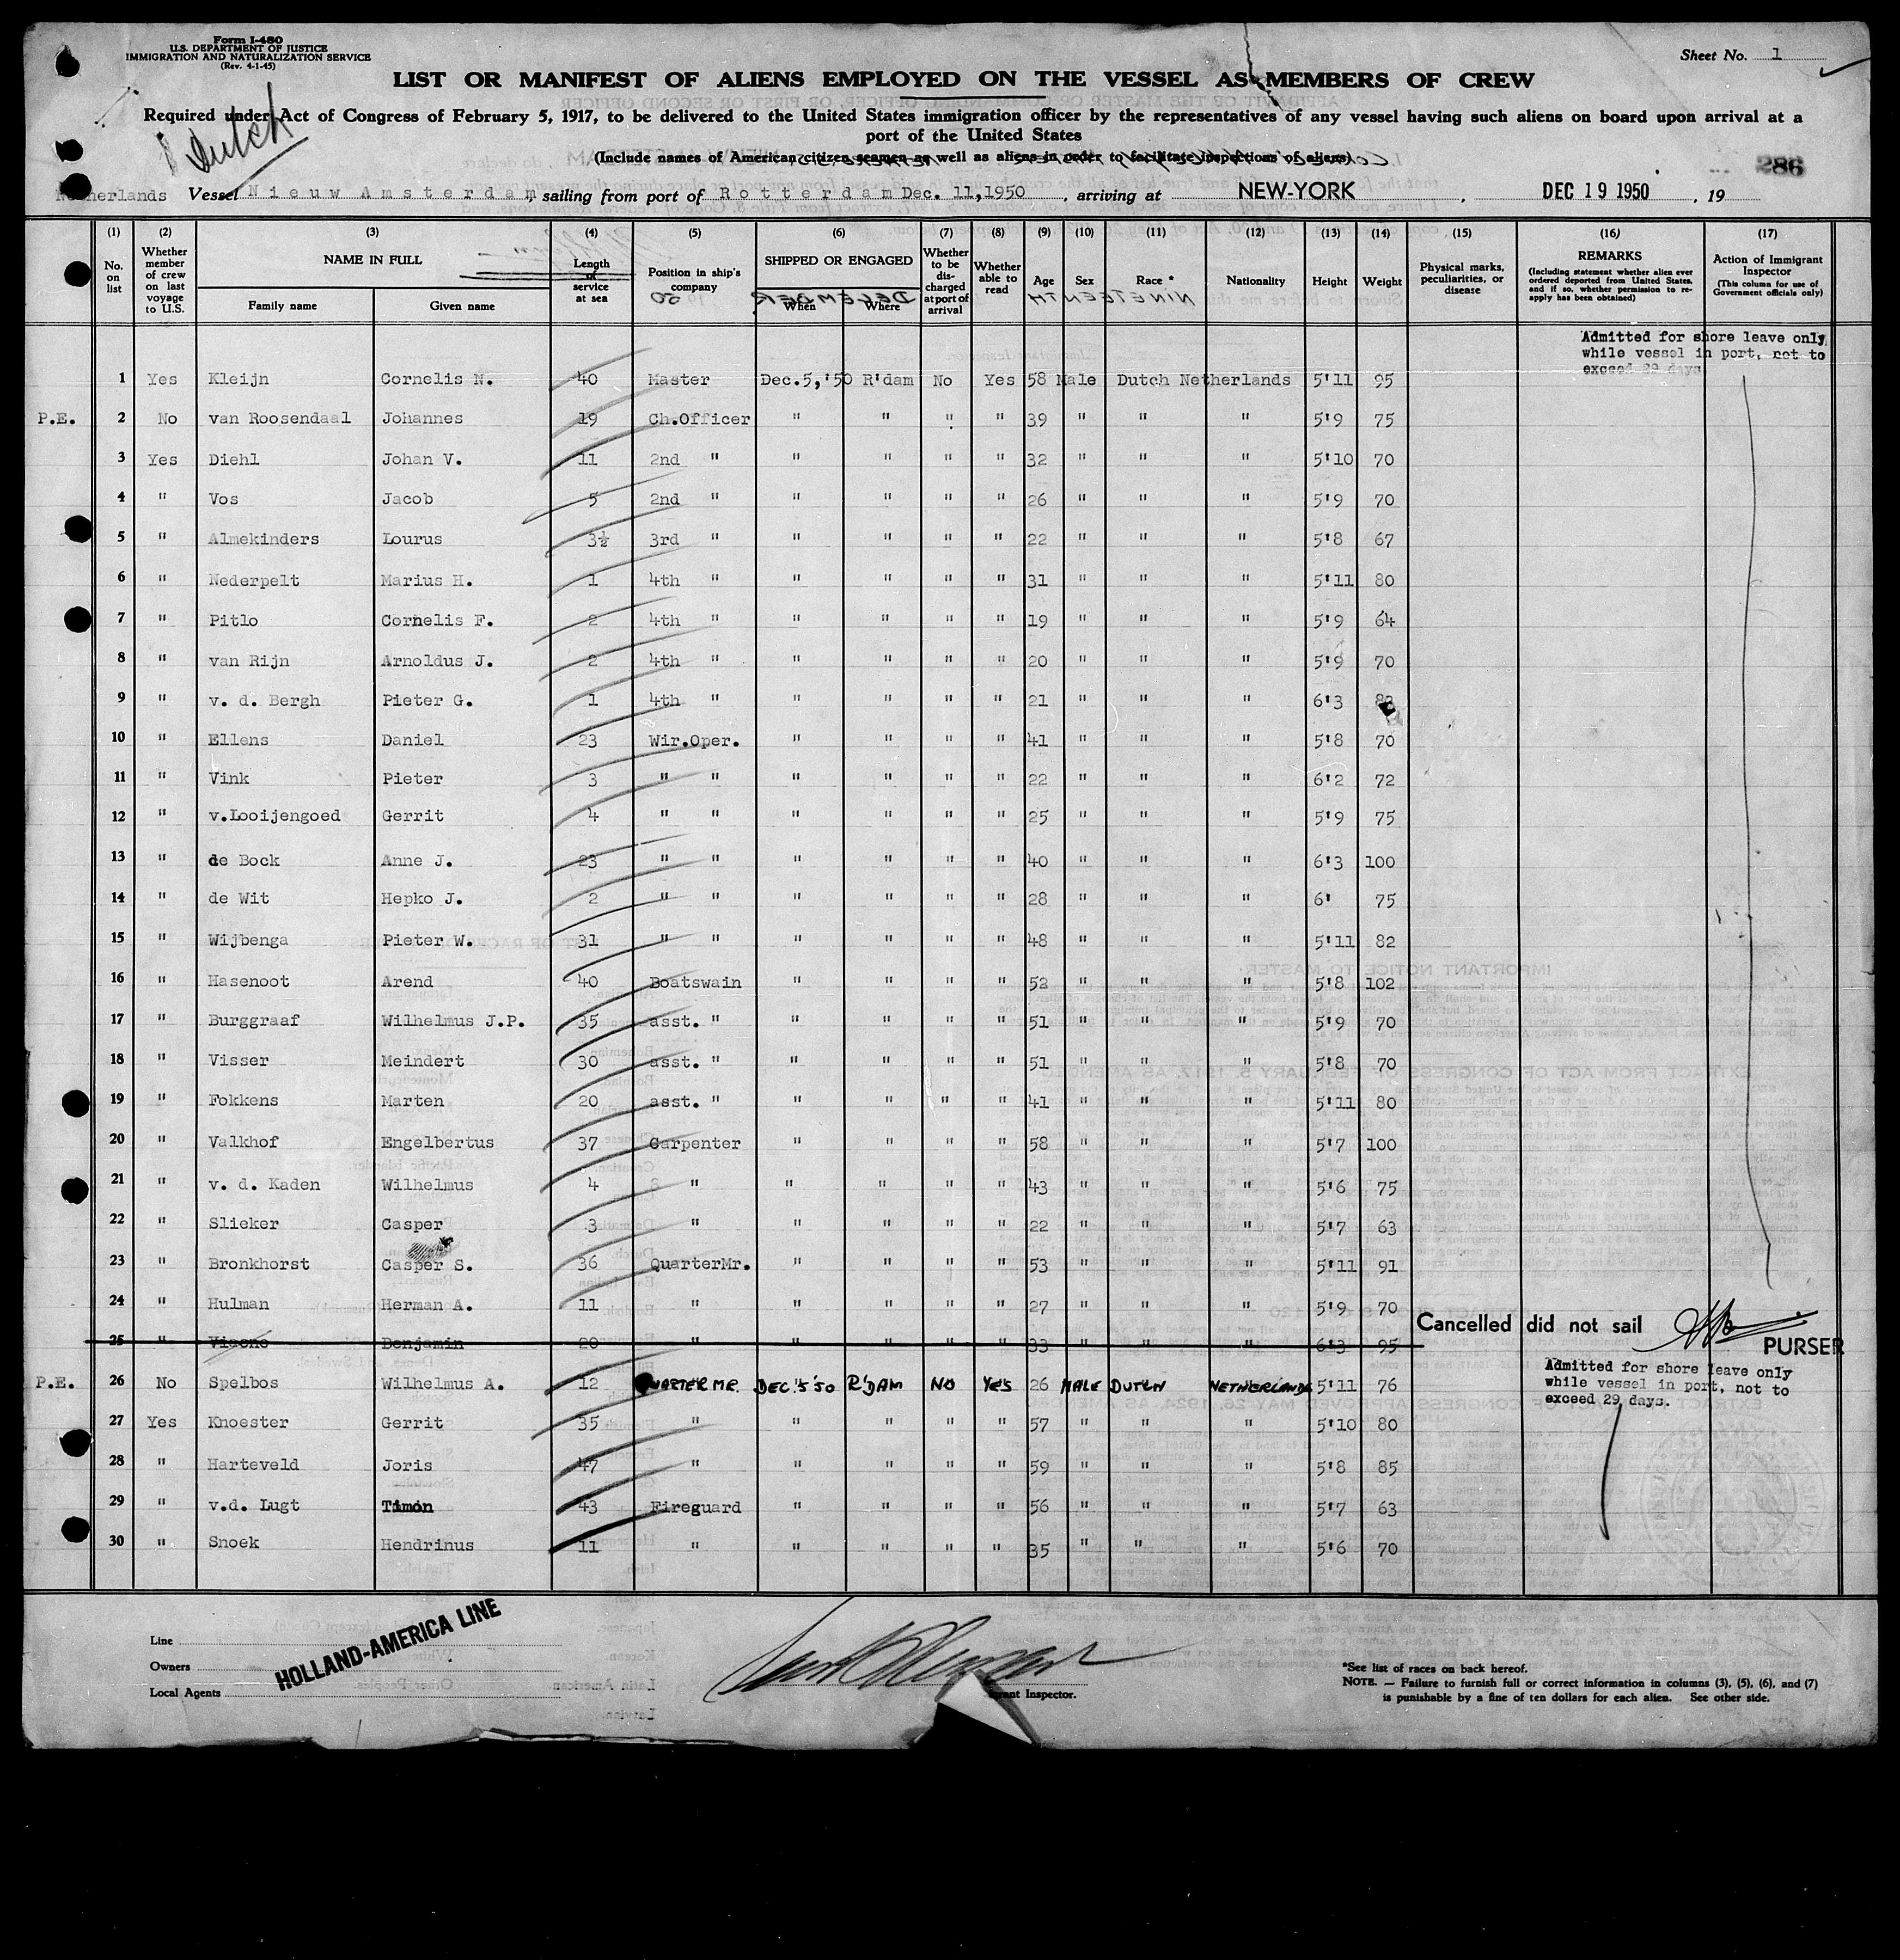 Form I-480
U.S. DEPARTMENT OF JUSTICE
IMMIGRATION AND NATURALIZATION SERVICE
(Rev. 4-1-45)
Sheet No. 1
LIST OR MANIFEST OF ALIENS EMPLOYED ON THE VESSEL AS MEMBERS OF CREW
Dutch
Required under Act of Congress of February 5, 1917, to be delivered to the United States immigration officer by the representatives of any vessel having such aliens on board upon arrival at a
port of the United States
(Include names of American citizen seamen as well as aliens in order to facilitate inspections of aliens)
286
Netherlands Vessel Nieuw Amsterdam, sailing from port of Rotterdam Dec. 11,1950, arriving at NEW-YORK, DEC 19 1950, 19
(1) No. on list (2) Whether member of crew on last voyage to U.S. (3) NAME IN FULL Family name Given name (4) Length of service at sea (5) Position in ship's company (6) SHIPPED OR ENGAGED When Where (7) Whether to be discharged at port of arrival (8) Whether able to read (9) Age (10) Sex (11) Race * (12) Nationality (13) Height (14) Weight (15) Physical marks, peculiarities, or disease (16) REMARKS (Including statement whether alien ever ordered deported from United States, and if so, whether permission to reapply has been obtained) (17) Action of Immigrant Inspector (This column for use of Government officials only)
Admitted for shore leave only
while vessel in port, not to
exceed 29 days
1 Yes Kleijn Cornelis N. 40 Master Dec.5,'50 R'dam No Yes 58 Male Dutch Netherlands 5'11 95
P.E. 2 No van Roosendaal Johannes 19 Ch.Officer " " " " 39 " " " 5'9 75
3 Yes Diehl Johan V. 11 2nd " " " " " 32 " " " 5'10 70
4 " Vos Jacob 5 2nd " " " " " 26 " " " 5'9 70
5 " Almekinders Lourus 3½ 3rd " " " " " 22 " " " 5'8 67
6 " Nederpelt Marius H. 1 4th " " " " " 31 " " " 5'11 80
7 " Pitlo Cornelis F. 2 4th " " " " " 19 " " " 5'9 64
8 " van Rijn Arnoldus J. 2 4th " " " " " 20 " " " 5'9 70
9 " v. d. Bergh Pieter G. 1 4th " " " " " 21 " " " 6'3
10 " Ellens Daniel 23 Wir.Oper. " " " " 41 " " " 5'8 70
11 " Vink Pieter 3 " " " " " " 22 " " " 6'2 72
12 " v.Looijengoed Gerrit 4 " " " " " " 25 " " " 5'9 75
13 " de Bock Anne J. 23 " " " " " " 40 " " " 6'3 100
14 " de Wit Hepko J. 2 " " " " " " 28 " " " 6' 75
15 " Wijbenga Pieter W. 31 " " " " " " 48 " " " 5'11 82
16 " Hasenoot Arend 40 Boatswain " " " " 52 " " " 5'8 102
17 " Burggraaf Wilhelmus J.P. 35 asst. " " " " " 51 " " " 5'9 70
18 " Visser Meindert 30 asst. " " " " " 51 " " " 5'8 70
19 " Fokkens Marten 20 asst. " " " " " 41 " " " 5'11 80
20 " Valkhof Engelbertus 37 Carpenter " " " " 58 " " " 5'7 100
21 " v. d. Kaden Wilhelmus 4 " " " " " 43 " " " 5'6 75
22 " Slieker Casper 3 " " " " " 22 " " " 5'7 63
23 " Bronkhorst Casper S. 36 QuarterMr. " " " " 53 " " " 5'11 91
24 " Hulman Herman A. 11 " " " " " 27 " " " 5'9 70
25 " Benjamin 20 " " " " " 33 " " " 6'3 95 Cancelled did not sail PURSER
Admitted for shore leave only
while vessel in port, not to
exceed 29 days.
P.E. 26 No Spelbos Wilhelmus A. 12 QUARTER MR. DEC. 5 '50 R'DAM NO YES 26 MALE DUTCH NETHERLANDS 5'11 76
27 Yes Knoester Gerrit 35 " " " " " 57 " " " 5'10 80
28 " Harteveld Joris 47 " " " " " 59 " " " 5'8 85
29 " v.d. Lugt Timon 43 Fireguard " " " " 56 " " " 5'7 63
30 " Snoek Hendrinus 11 " " " " " 35 " " " 5'6 70
Line
Owners
Local Agents
HOLLAND-AMERICA LINE
Inspector.
*See list of races on back hereof.
NOTE. — Failure to furnish full or correct information in columns (3), (5), (6), and (7)
is punishable by a fine of ten dollars for each alien. See other side.